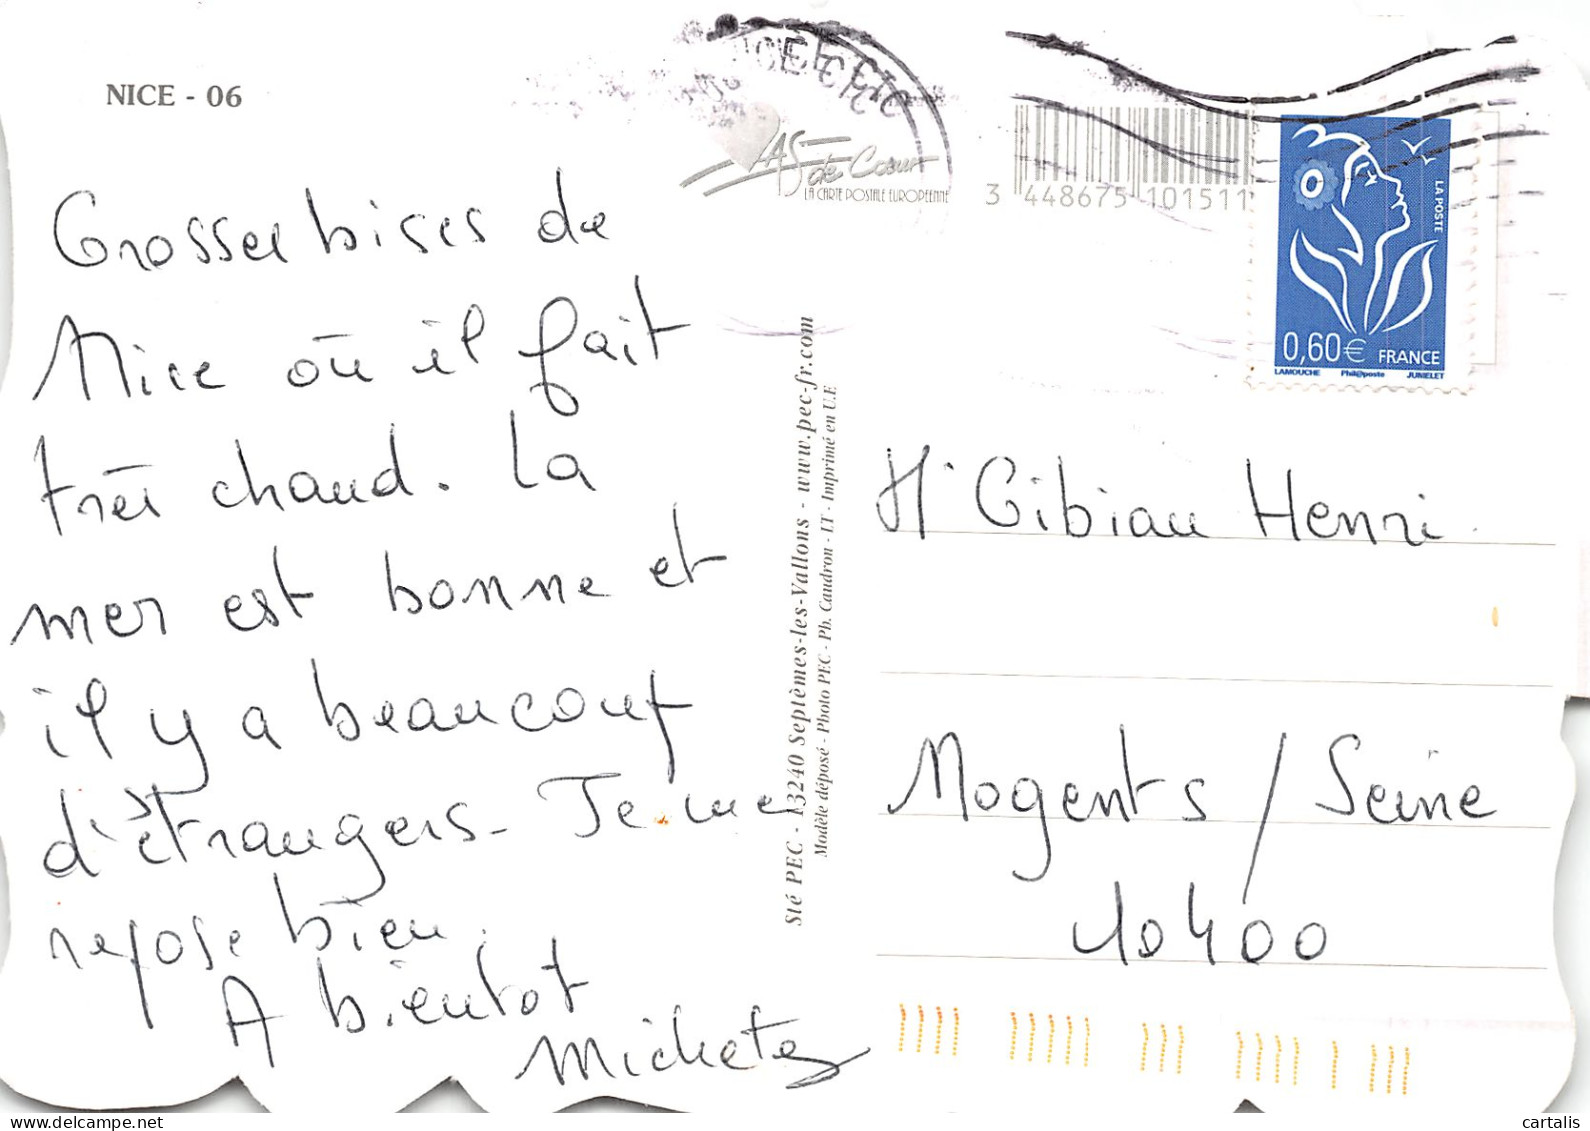 NICE - 06
AS de Coeur
LA CARTE POSTALE EUROPEENNE
3 448675 101511
LA POSTE
0,60€ FRANCE
LAMOUCHE Phil@poste JUMELET
Grosses bises de
Nice où il fait
très chaud. La
mer est bonne et
il y a beaucoup
d'étrangers. Je me
repose bien.
A bientot
Sté PEC - 13240 Septèmes-les-Vallons - www.pec-fr.com
Modèle déposé - Photo PEC - Ph. Caudron - LT - Imprimé en U.E
Mr Gibiau Henri
Nogents / Seine
10400
cartalis